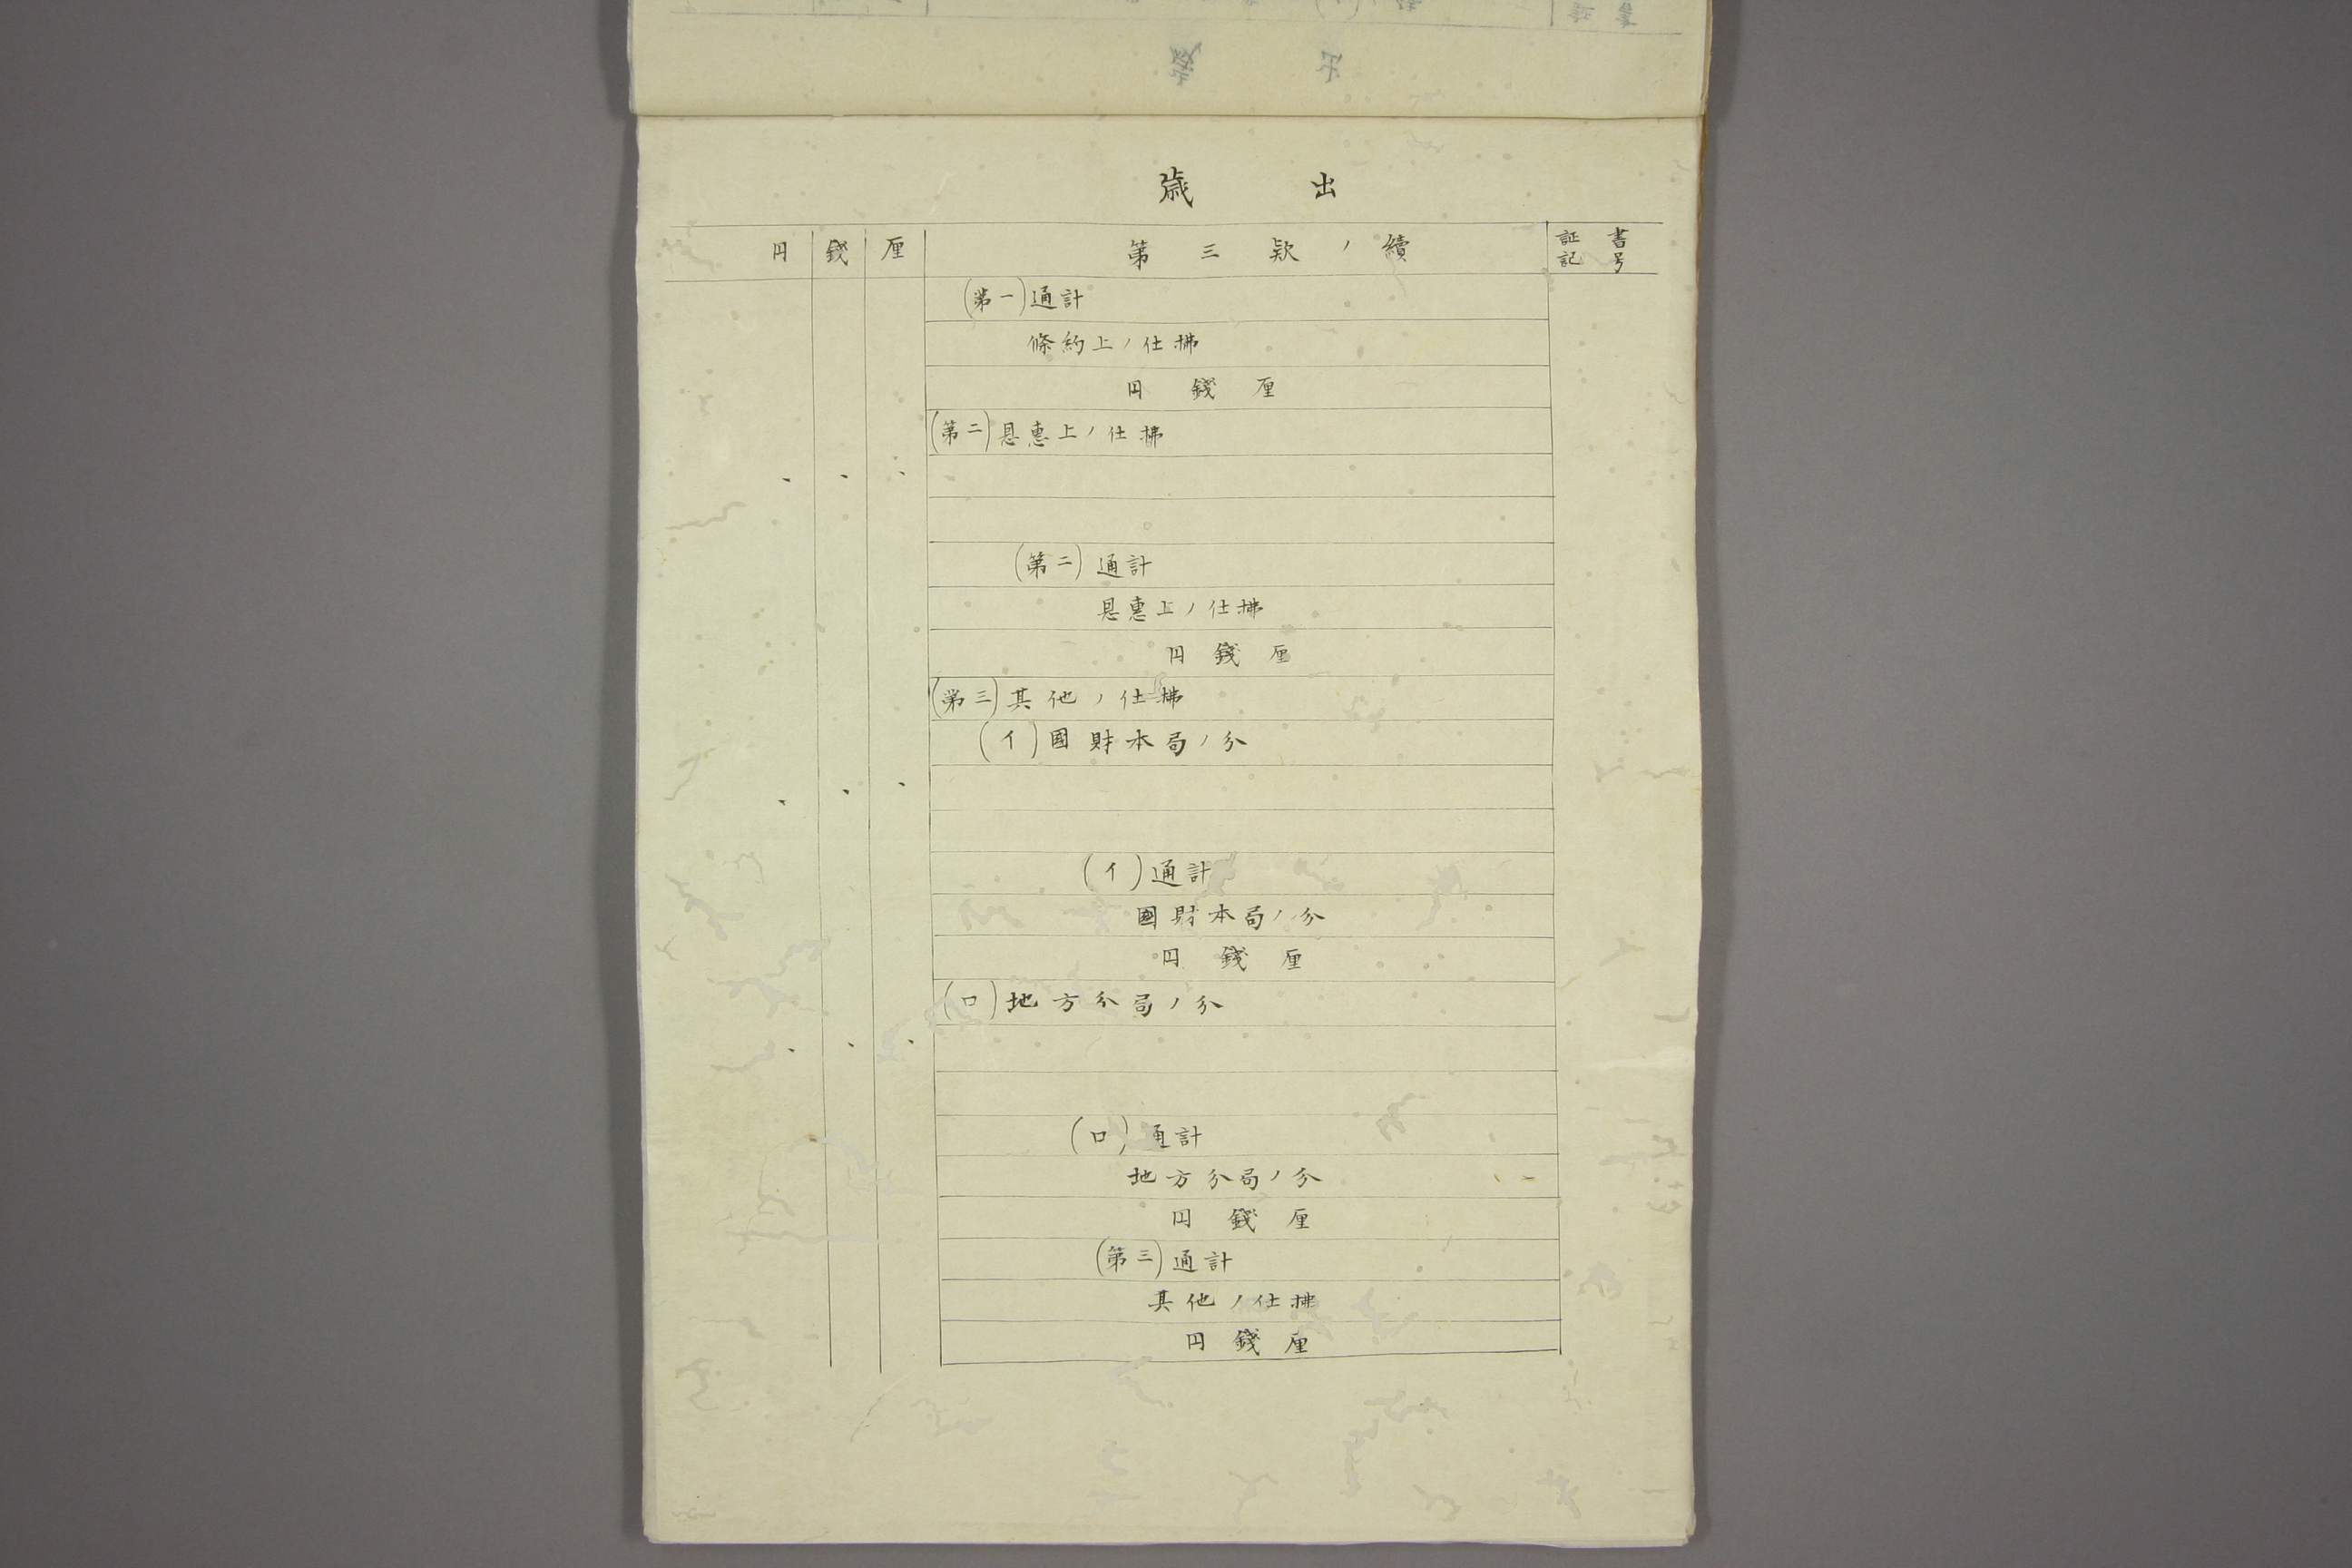 歳出
円 錢 厘 第三款ノ續 証書記号
(第一)通計
條約上ノ仕拂
円 錢 厘
(第二)恩惠上ノ仕拂
(第二)通計
恩惠上ノ仕拂
円 錢 厘
(第三)其他ノ仕拂
(イ)國財本局ノ分
(イ)通計
國財本局ノ分
円 錢 厘
(ロ)地方分局ノ分
(ロ)通計
地方分局ノ分
円 錢 厘
(第三)通計
其他ノ仕拂
円 錢 厘